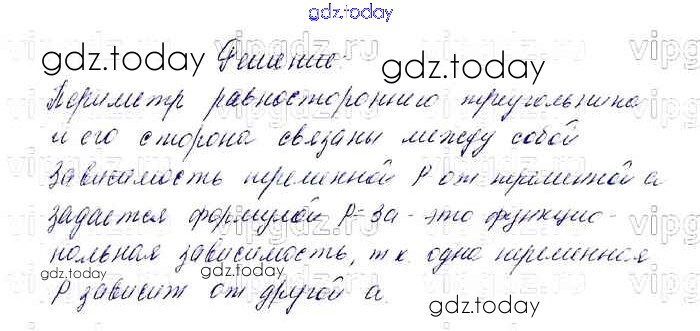 gdz.today
gdz.today Решение: gdz.today
Периметр равностороннего треугольника
и его сторона связаны между собой
Зависимость переменной P от переменной a
задается формулой P=3a - это функцио-
нальная зависимость, т к. одна переменная
gdz.today gdz.today
P зависит от другой a.
gdz.today